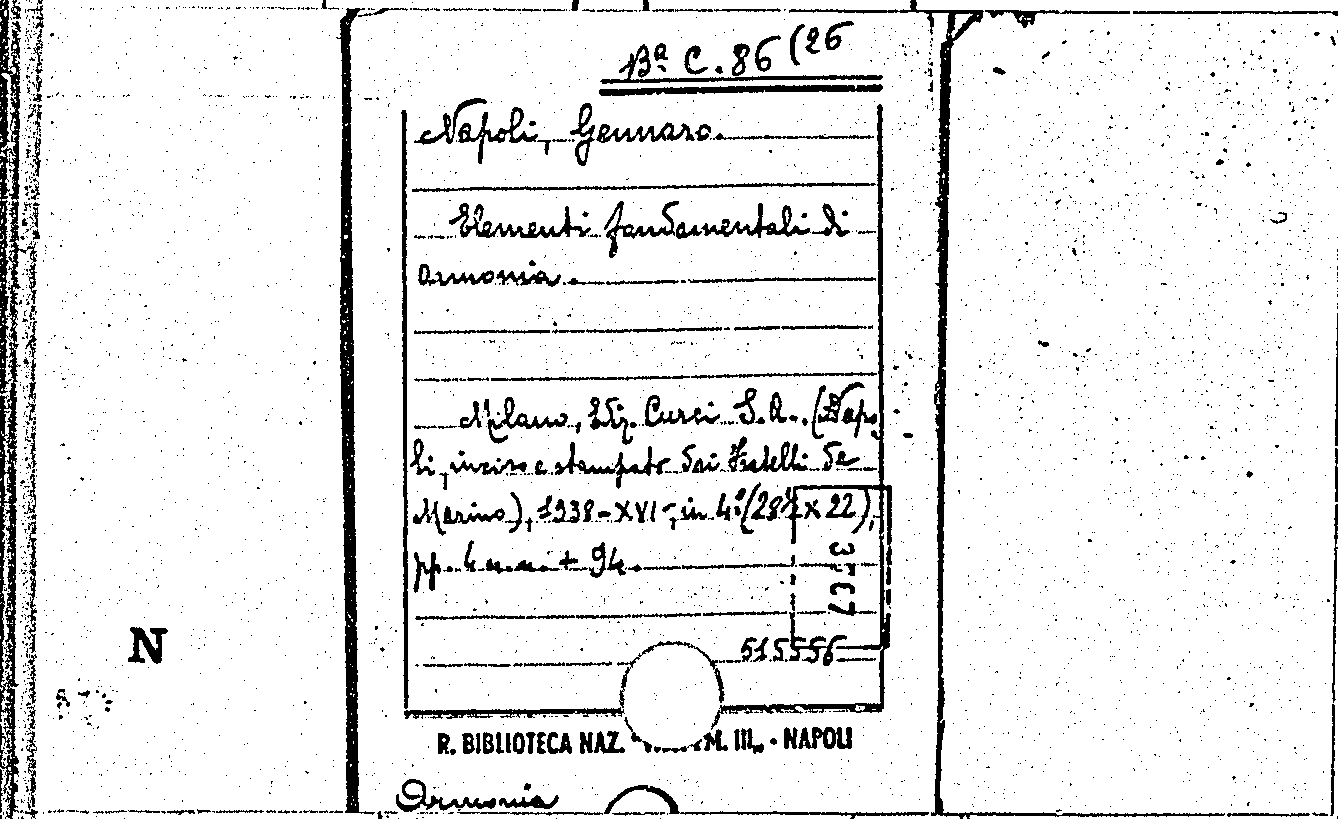 Bª C. 86 (26
Napoli, Gennaro.
Elementi fondamentali di
armonia.
Milano, Ediz. Curci S. A. (Napo
li, inciso e stampato dai Fratelli de
Marino), 1938-XVI-, in 4º (28½ x 22),
pp. 4 n.n. + 94.
515556
R. BIBLIOTECA NAZ. M. III„ - NAPOLI
N
Armonia